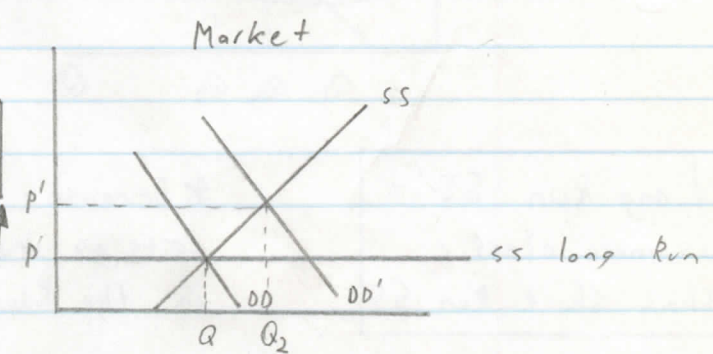 Market
SS
P'
P'
SS long Run
DD
DD'
Q
Q2